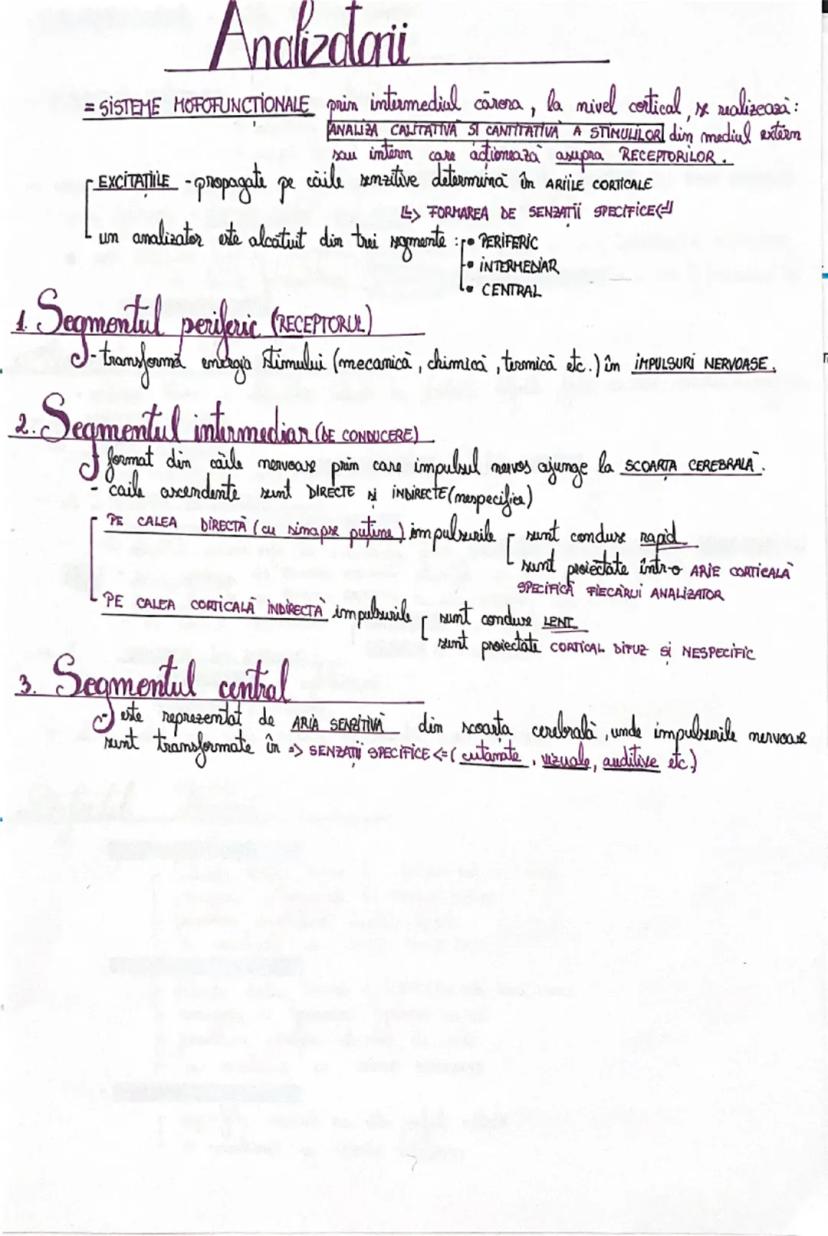 Analizatorii
= SISTEME MOFOFUNCTIONALE prin intermediul cărora, la nivel cortical, se realizează:
ANALIZA CALITATIVĂ ȘI CANTITATIVĂ A STIMULILOR din mediul extern
sau intern care acționează asupra RECEPTORILOR.
EXCITAȚIILE - propagate pe căile senzitive determină în ARIILE CORTICALE
↳> FORMAREA DE SENZAȚII SPECIFICE <↲
un analizator este alcătuit din trei segmente: • PERIFERIC
• INTERMEDIAR
• CENTRAL
1. Segmentul periferic (RECEPTORUL)
- transformă energia stimului (mecanică, chimică, termică etc.) în IMPULSURI NERVOASE.
2. Segmentul intermediar (DE CONDUCERE)
- format din căile nervoase prin care impulsul nervos ajunge la SCOARȚA CEREBRALĂ.
- căile ascendente sunt DIRECTE și INDIRECTE (nespecifice)
PE CALEA DIRECTĂ (cu sinapse puține) impulsurile sunt conduse rapid
sunt proiectate într-o ARIE CORTICALĂ
SPECIFICĂ FIECĂRUI ANALIZATOR
PE CALEA CORTICALĂ INDIRECTĂ impulsurile sunt conduse LENT
sunt proiectate CORTICAL DIFUZ ȘI NESPECIFIC
3. Segmentul central
- este reprezentat de ARIA SENZITIVĂ din scoarța cerebrală, unde impulsurile nervoase
sunt transformate în => SENZAȚII SPECIFICE <= (cutanate, vizuale, auditive etc.)